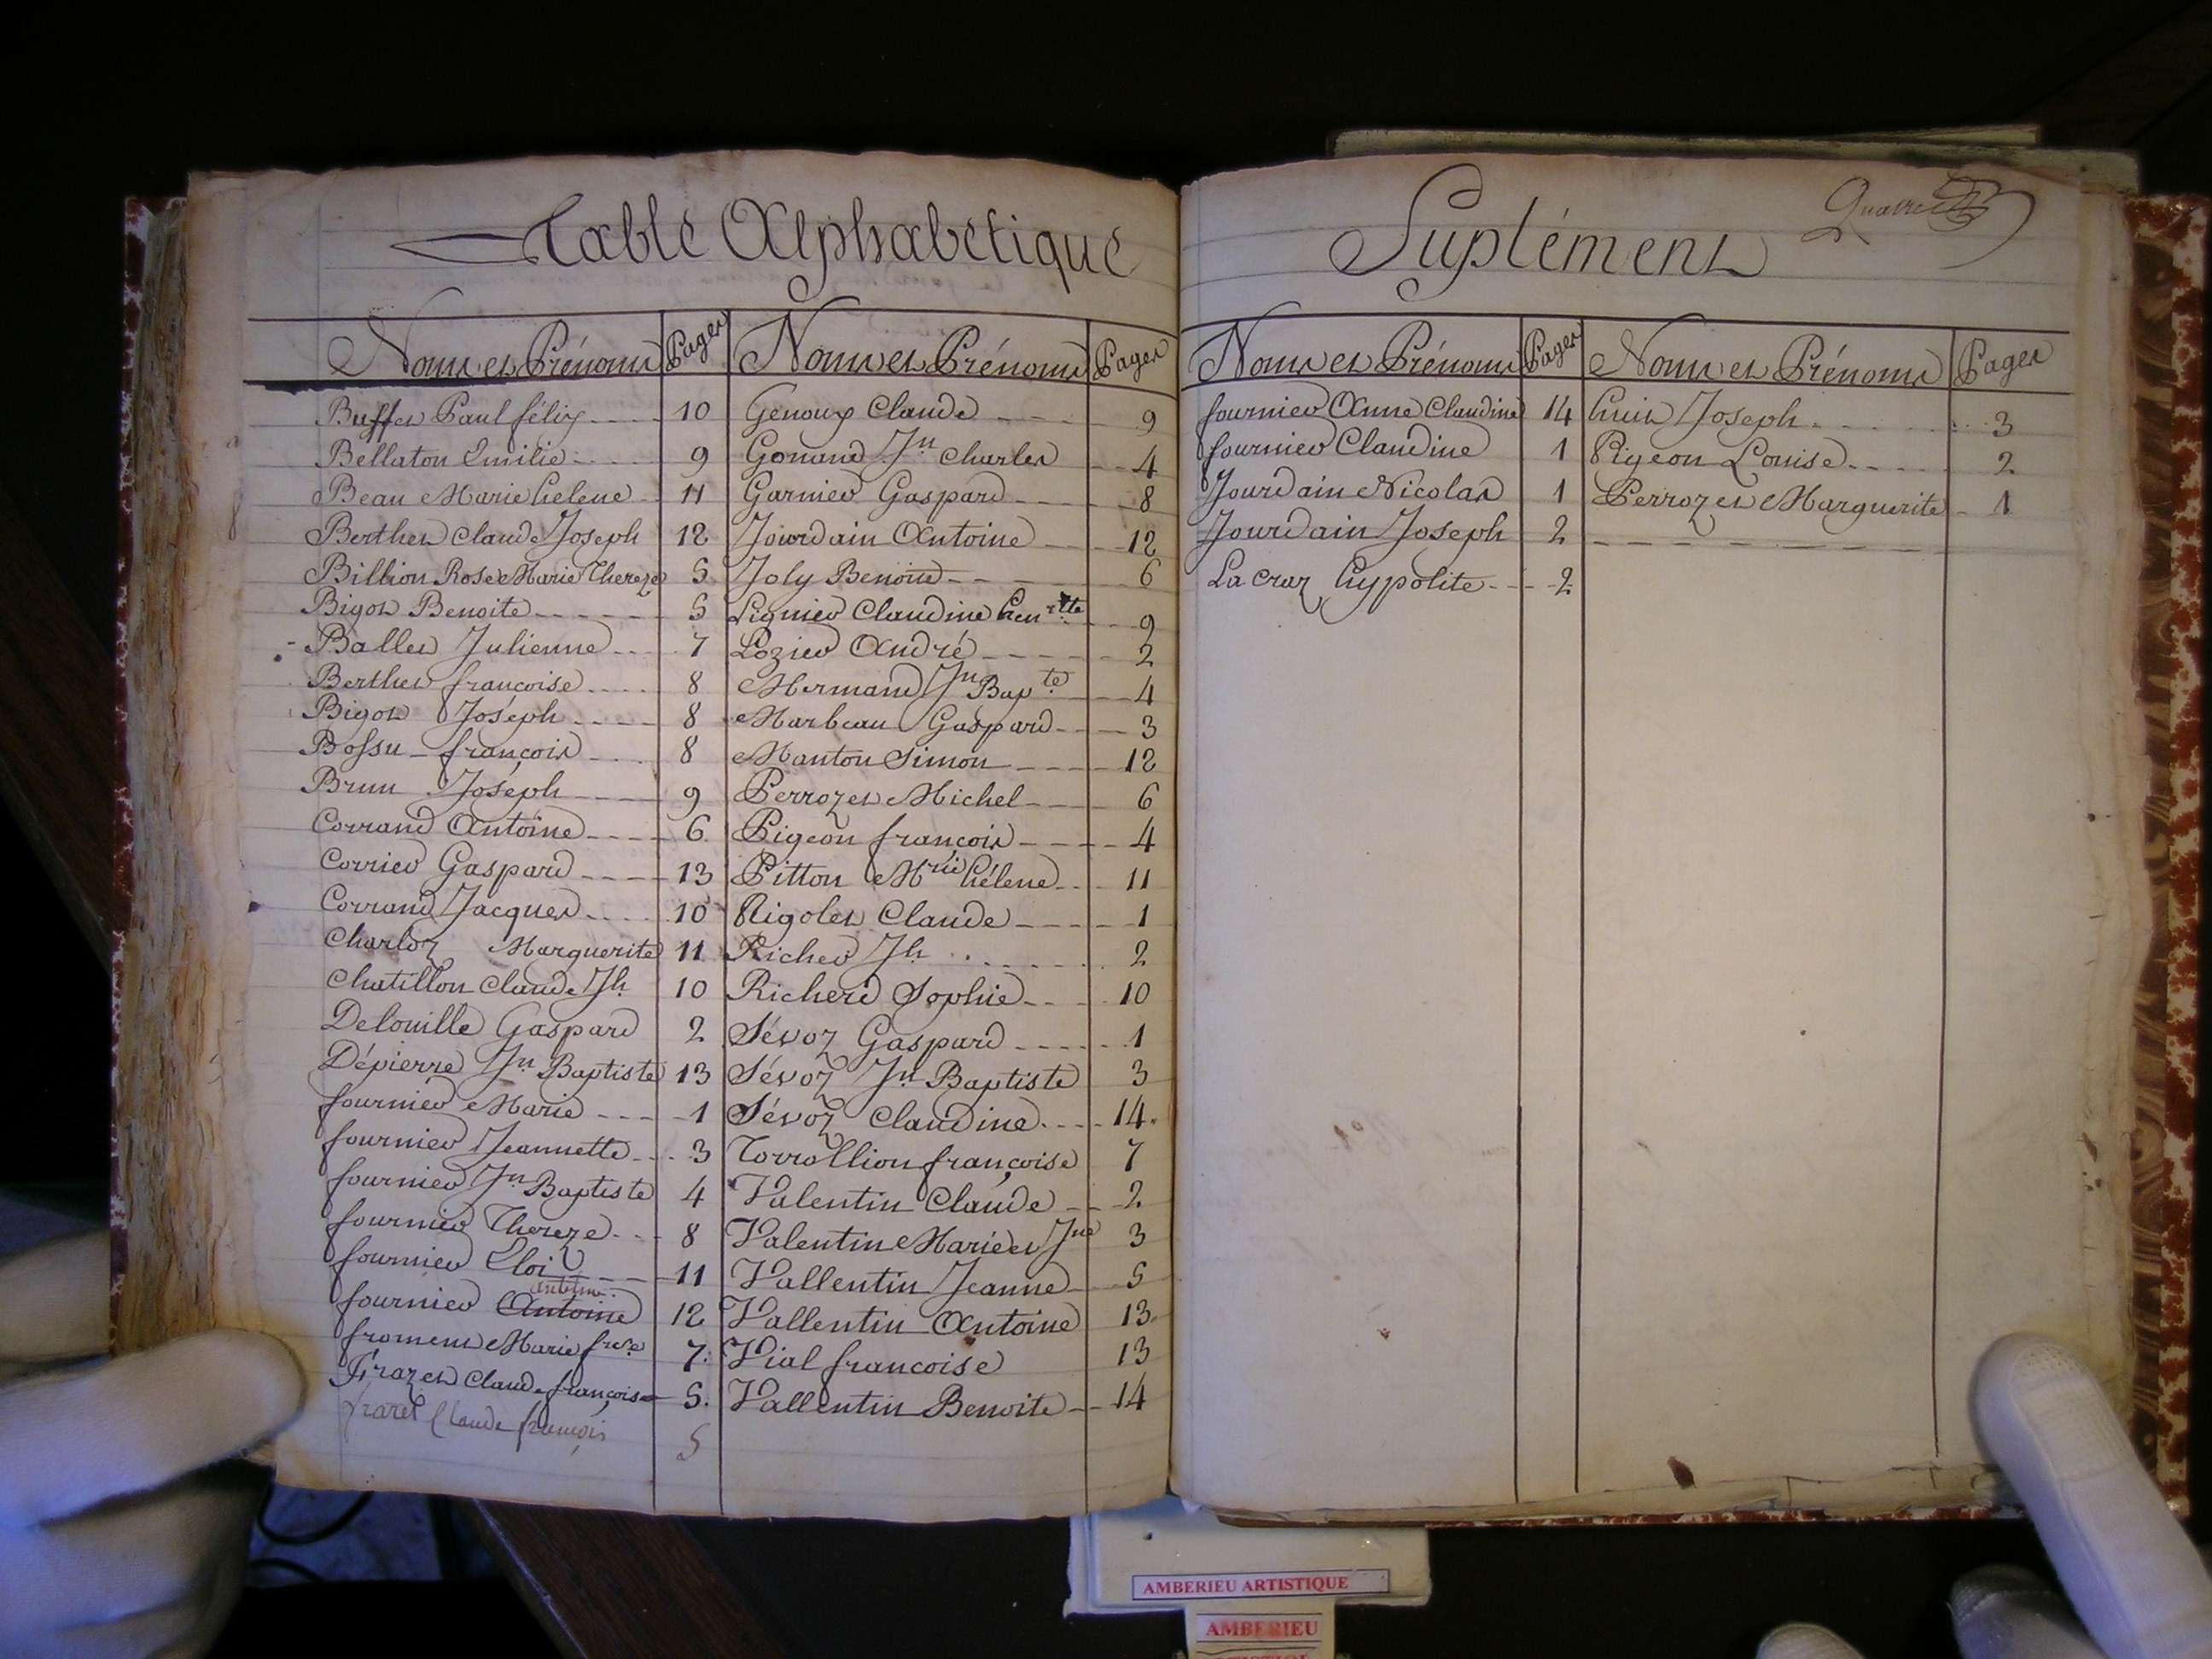 Table Alphabétique
Noms et Prénoms Pages
Buffet Paul félix 10
Bellaton Emilie 9
Beau Marie helene 11
Berthet Claude Joseph 12
Billion Rose Marie Thereze 5
Bigot Benoite 5
Ballet Julienne 7
Berthet francoise 8
Bigot Joseph 8
Bossu françois 8
Brun Joseph 9
Corrand Antoine 6
Corrier Gaspard 13
Corrand Jacques 10
Charloz Marguerite 11
Chatillon Claude Jh 10
Delouille Gaspard 2
Dépierre Jn Baptiste 13
fournier Marie 1
fournier Jeannette 3
fournier Jn Baptiste 4
fournier Thereze 8
fournier Eloi 11
fournier Antoine 12
froment Marie frse 7
Frazet Claude françois 5
frazet Claude françois 5
Noms et Prénoms Pages
Genoux Claude 9
Gonand Jn Charles 4
Garnier Gaspard 8
Jourdain Antoine 12
Joly Benoit 6
Lignier Claudine hentte 9
Lozier André 2
Mermand Jn Bapte 4
Marbeau Gaspard 3
Manton Simon 12
Perrozet Michel 6
Pigeon françois 4
Pitton Mrie hélene 11
Rigolet Claude 1
Richer Jh 2
Richerd Sophie 10
Sévoz Gaspard 1
Sévoz Jn Baptiste 3
Sévoz Claudine 14
Torrollion françoise 7
Valentin Claude 2
Valentin Marie et Jne 3
Vallentin Jeanne 5
Vallentin Antoine 13
Vial francoise 13
Vallentin Benoite 14
Suplément
Noms et Prénoms Pages
fournier Anne Claudine 14
fournier Claudine 1
Jourdain Nicolas 1
Jourdain Joseph 2
La Craz hypolite 2
Noms et Prénoms Pages
huit Joseph 3
Pigeon Louise 2
Perrozet Marguerite 1
AMBERIEU ARTISTIQUE
AMBERIEU